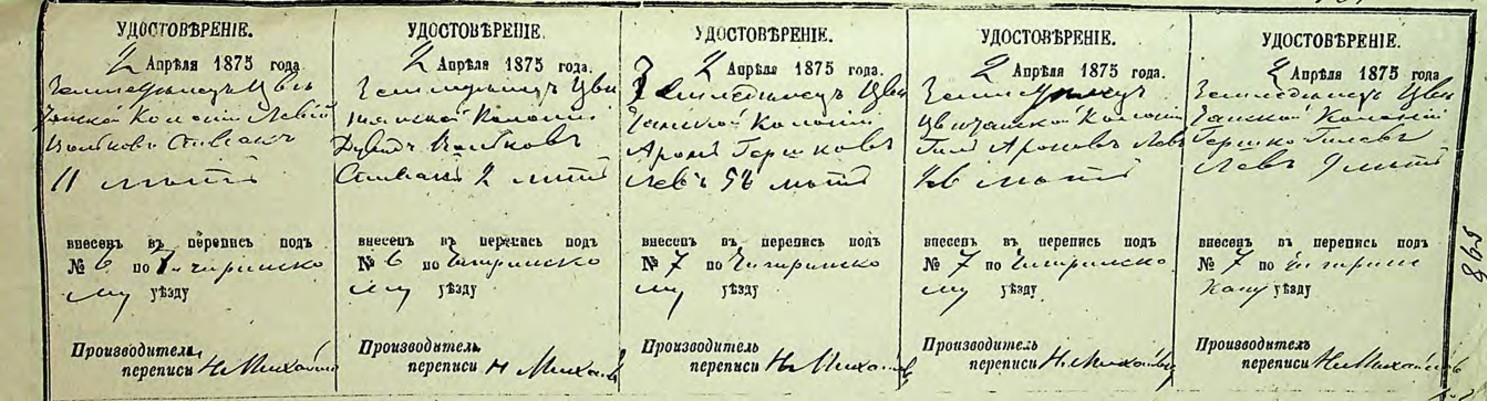 УДОСТОВѢРЕНІЕ.
2 Апрѣля 1875 года.
Земледѣлецъ Цви
танской Колоніи Левій
Волковъ Спивакъ
11 лѣтъ
внесенъ въ перепись подъ
№ 6 по Чигиринско
му уѣзду
Производитель
переписи Н Михайлов
УДОСТОВѢРЕНІЕ.
2 Апрѣля 1875 года.
Земледѣлецъ Цви
танской Колоніи
Дувидъ Волковъ
Спивакъ 2 лѣтъ
внесенъ въ перепись подъ
№ 6 по Чигиринско
му уѣзду
Производитель
переписи Н Михайлов
УДОСТОВѢРЕНІЕ.
2 Апрѣля 1875 года.
Земледѣлецъ Цви
танской Колоніи
Аронъ Гершковъ
Левъ 58 лѣтъ
внесенъ въ перепись подъ
№ 7 по Чигиринско
му уѣзду
Производитель
переписи Н Михайлов
УДОСТОВѢРЕНІЕ.
2 Апрѣля 1875 года.
Земледѣлецъ
Цвитанской Колоніи
Ароновъ Левъ
лѣтъ
внесенъ въ перепись подъ
№ 7 по Чигиринско
му уѣзду
Производитель
переписи Н Михайлов
УДОСТОВѢРЕНІЕ.
2 Апрѣля 1875 года
Земледѣлецъ Цви
танской Колоніи
Гершко
Левъ 9 лѣтъ
внесенъ въ перепись подъ
№ 7 по Чигирин
скому уѣзду
Производитель
переписи Н Михайлов
865